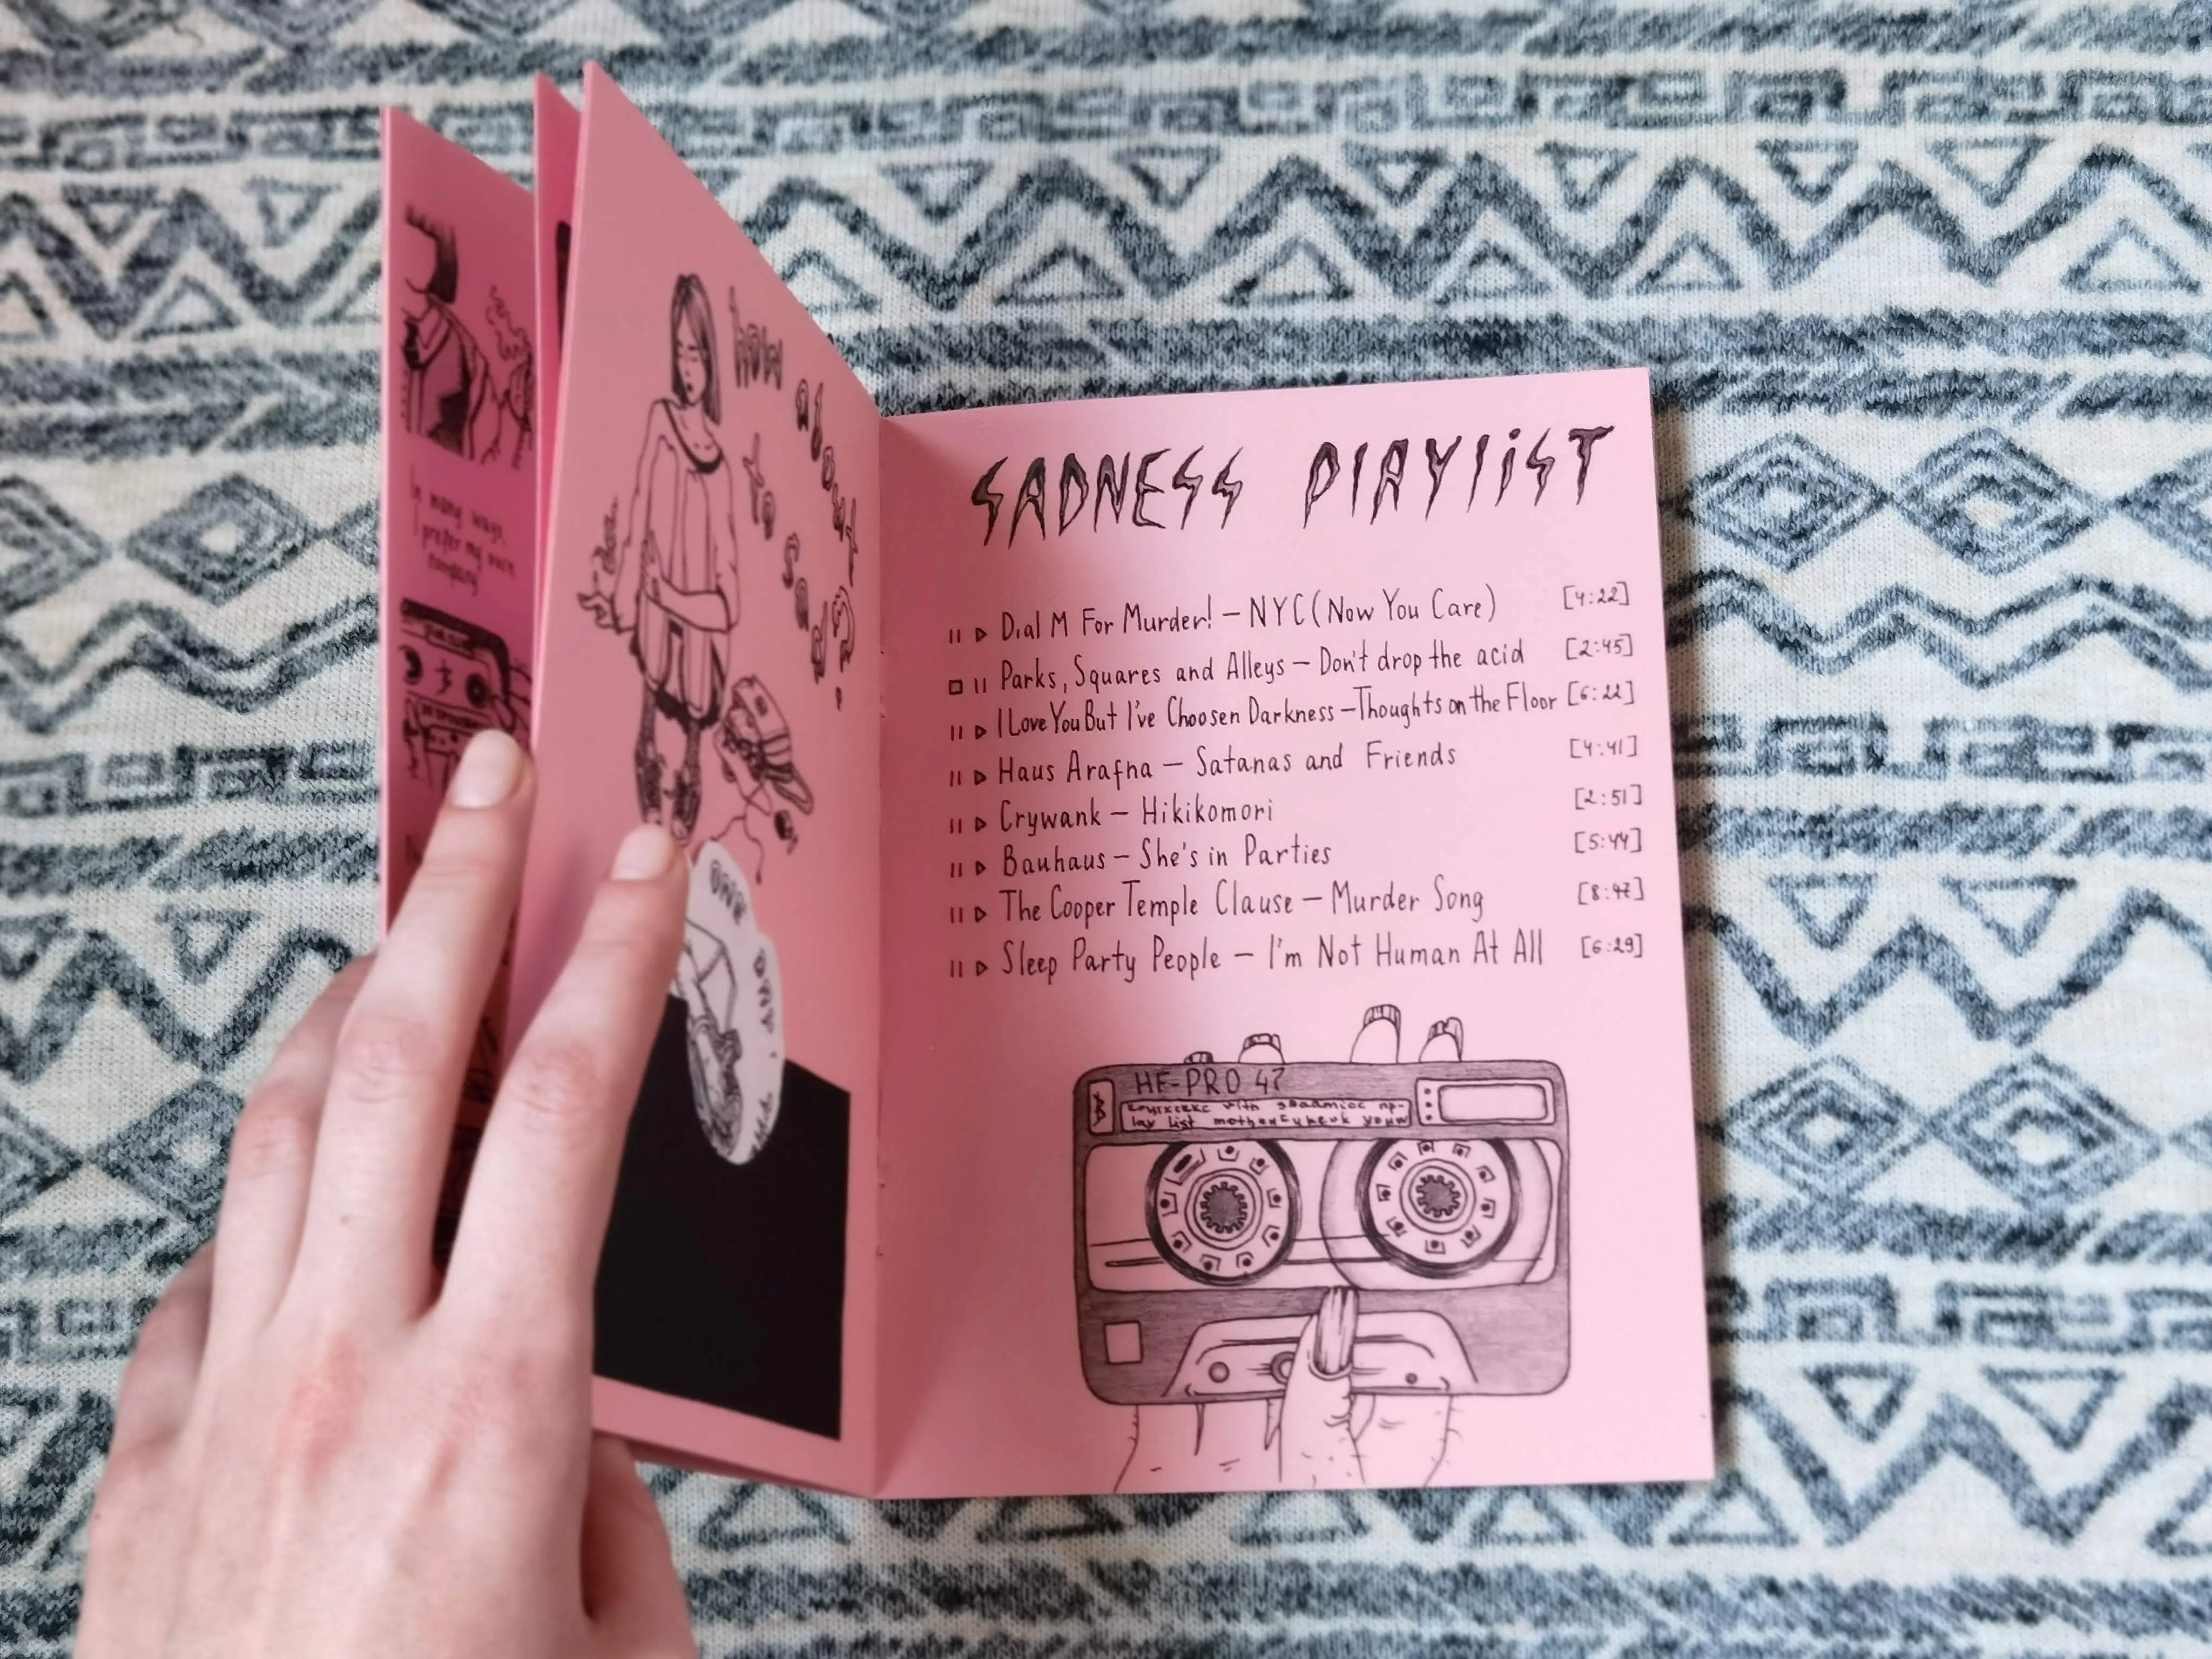 In many ways,
I prefer my own
company
how about
to sad?
SADNESS PLAYLiST
Dial M For Murder! – NYC (Now You Care) [4:22]
Parks, Squares and Alleys – Don't drop the acid [2:45]
I Love You But I've Choosen Darkness – Thoughts on the Floor [6:22]
Haus Arafna – Satanas and Friends [4:41]
Crywank – Hikikomori [2:51]
Bauhaus – She's in Parties [5:44]
The Cooper Temple Clause – Murder Song [8:47]
Sleep Party People – I'm Not Human At All [6:29]
HF-PRO 47
lay list